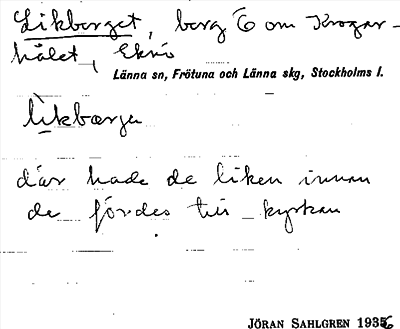 Likberget, berg Ö om Krogar-
hålet, Eknö
Länna sn, Frötuna och Länna skg, Stockholms l.
lìkbærjə
där hade de liken innan
de fördes till kyrkan
JÖRAN SAHLGREN 1936